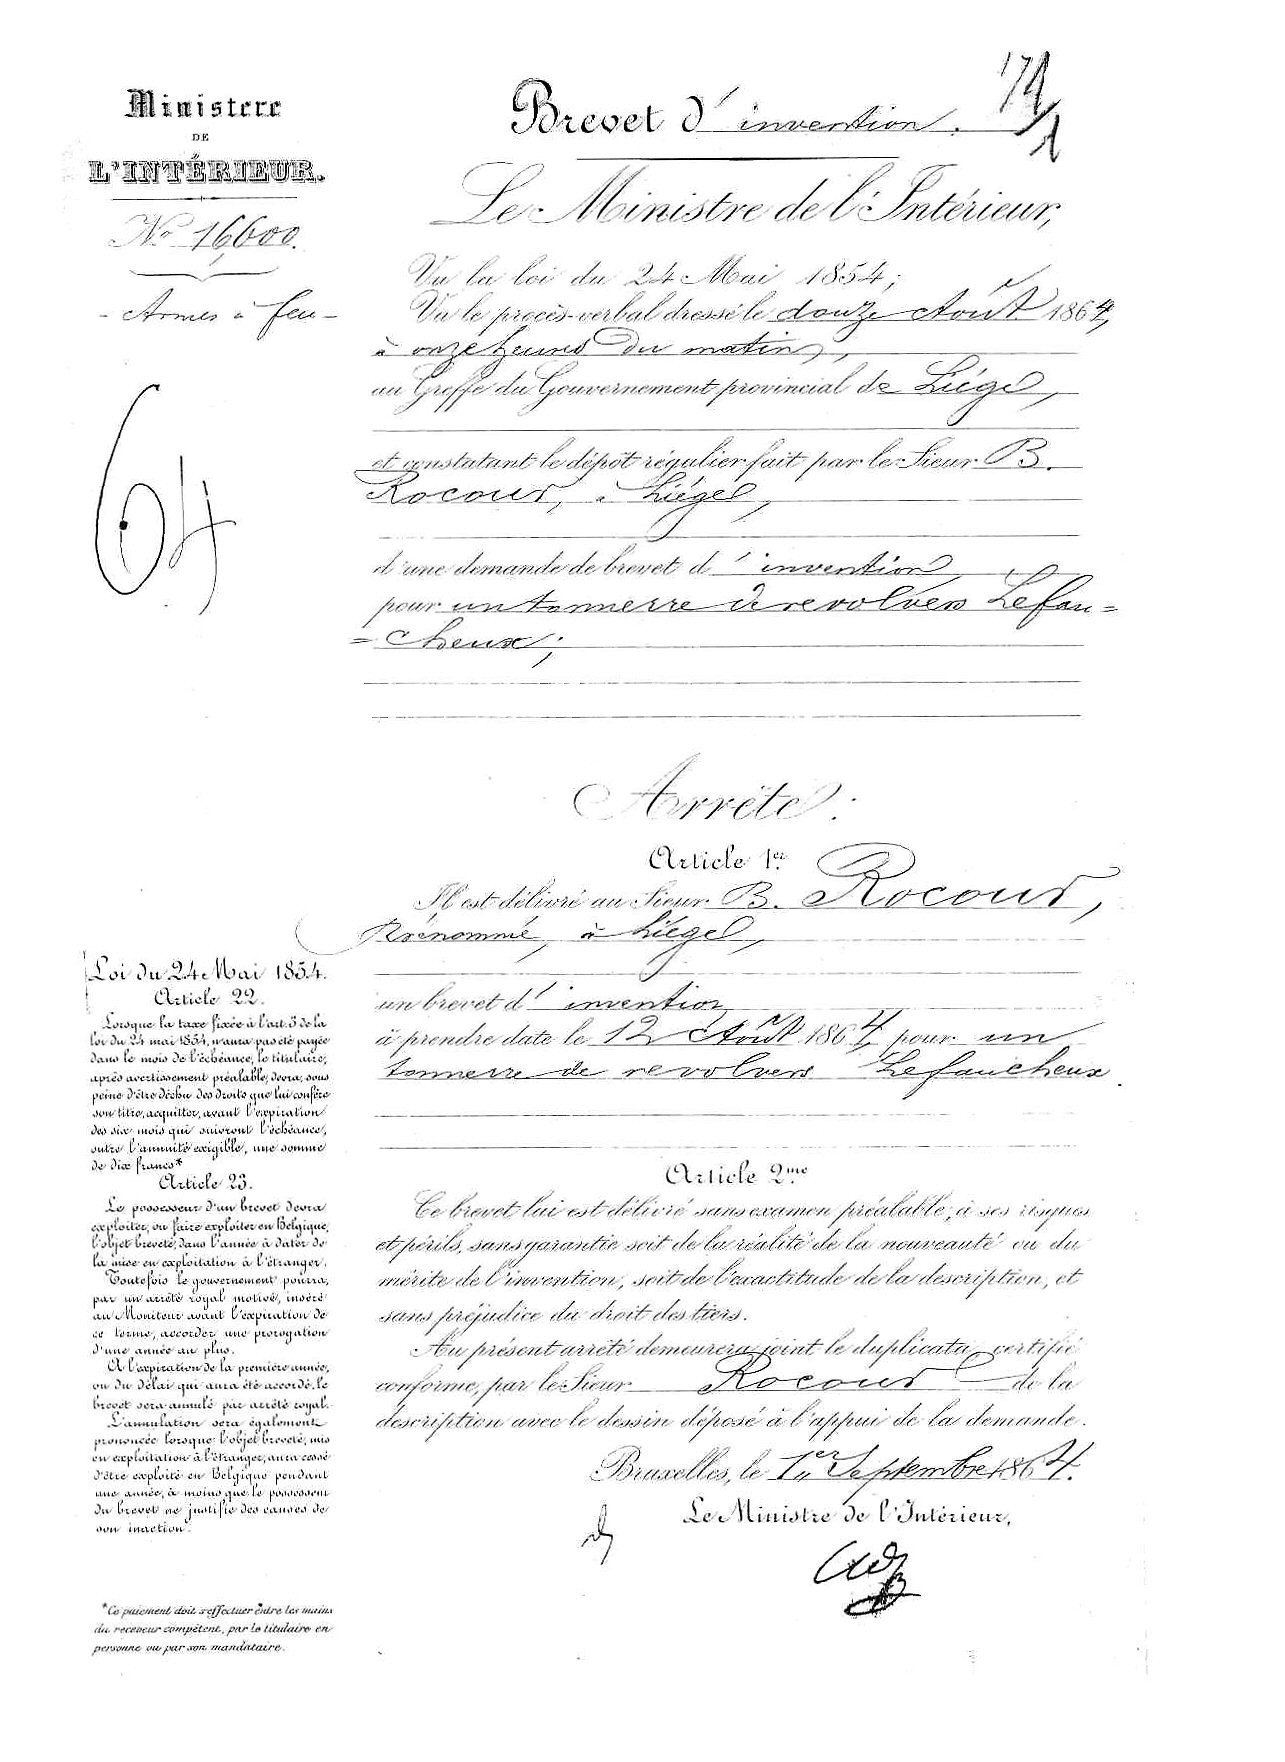 Ministere
DE
L'INTÉRIEUR.
No 16,600.
- Armes à feu -
64
Brevet d'invention.
Le Ministre de l'Intérieur,
Vu la loi du 24 Mai 1854;
Vu le procès-verbal dressé le douze Août 1864,
à onze heures du matin,
au Greffe du Gouvernement provincial de Liége,
et constatant le dépôt régulier fait par le Sieur B.
Rocour, à Liége,
d'une demande de brevet d'invention
pour un tonnerre de revolvers Lefau=
=cheux;
Arrête:
Article 1er.
Il est délivré au Sieur B. Rocour,
Prénommé, à Liége,
un brevet d'invention
à prendre date le 12 Août 1864, pour un
tonnerre de revolvers Lefaucheux.
Article 2me
Ce brevet lui est délivré sans examen préalable, à ses risques
et périls, sans garantie soit de la réalité de la nouveauté ou du
mérite de l'invention, soit de l'exactitude de la description, et
sans préjudice du droit des tiers.
Au présent arrêté demeurera joint le duplicata certifié
conforme, par le Sieur Rocour de la
description avec le dessin déposé à l'appui de la demande.
Bruxelles, le 1er Septembre 1864.
Le Ministre de l'Intérieur,
Loi du 24 Mai 1854.
Article 22.
Lorsque la taxe fixée à l'art. 3 de la
loi du 24 mai 1854, n'aura pas été payée
dans le mois de l'échéance, le titulaire,
après avertissement préalable, devra, sous
peine d'être déchu des droits que lui confère
son titre, acquitter, avant l'expiration
des six mois qui suivront l'échéance,
outre l'annuité exigible, une somme
de dix francs*
Article 23.
Le possesseur d'un brevet devra
exploiter, ou faire exploiter en Belgique,
l'objet breveté, dans l'année à dater de
la mise en exploitation à l'étranger.
Toutefois le gouvernement pourra,
par un arrêté royal motivé, inséré
au Moniteur avant l'expiration de
ce terme, accorder une prorogation
d'une année au plus.
A l'expiration de la première année,
ou du délai qui aura été accordé, le
brevet sera annulé par arrêté royal.
L'annulation sera également
prononcée lorsque l'objet breveté, mis
en exploitation à l'étranger, aura cessé
d'être exploité en Belgique pendant
une année, à moins que le possesseur
du brevet ne justifie des causes de
son inaction.
*Ce paiement doit s'effectuer entre les mains
du receveur compétent, par le titulaire en
personne ou par son mandataire.